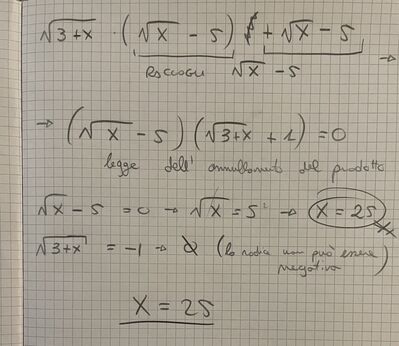 √3+x · (√x - 5) + √x - 5 →
RACCOGLI √x - 5
→ (√x - 5)(√3+x + 1) = 0
legge dell' annullamento del prodotto
√x - 5 = 0 → √x = 5² → x = 25
√3+x = -1 → ∅ (la radice non può essere
negativa)
x = 25